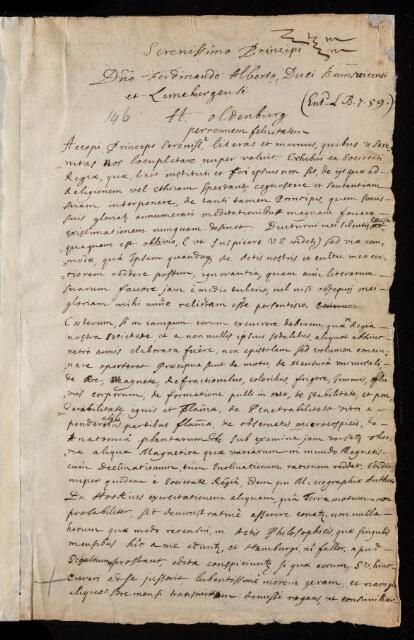 Serenissimo Principi
Dño Ferdinando Alberto, Duci Brunsvicensi
et Luneburgensi
(Ent. L.B. 7. 59.)
146 H. oldenburg
perennem felicitatem
Accepi, Princeps Serenissᵉ literas et munus, quibus Sere
nitas nos locupletare nuper voluit. Exhibui ea Societati
Regiæ, quæ, licet instituti et fori ipsius non sit, de iis quæ ad
Religionem vel ethicam spectant cognoscere et sententiam
suam interponere, de tanti tamen Principis, quem sociis
suis gloriatʳ annumerari meditationibus magnam fovere
existimationem nunquam desinet. Diuturni mei silentii, causa
quaquam est oblivio, (ut suspicere V.S. videtʳ) sed via com
moda, quâ ipsam quandoq de actis nostris et cultu meo cer
tiorem reddere possem, ignorantia, quam cum literarum
suarum favore jam è medio tulerit, nil nisi obsequij mei
gloriam mihi nunc relictam esse persentisco.
Cæterum, si in campum eorum excurrere deberem, quæ Regia
nostra Societate et a nonnullis ipsius sodalibus, aliquot abhinc
retro annis elaborata fuêre, non epistolam sed volumen concin
nare oporteret. Præcipua sunt de motu, de
de Magnete, de fractionibus, coloribus, frigore,
corporum, de formatione pulli in ovo, de stabilitate, et pon
derabilitate ignis et flamæ, de Penetrabilitate vitri a
ponderabilibᵘˢ partibus flamæ, de observatis microscopicis, de
Anatomiâ plantarum. Sub examine jam versatʳ theo
ria aliqua Magnetica quæ variarum in mundo Magneti
cum declinationum, tum Inclinationum rationem reddat. Edidit
nuper quidam è Societate Regiâ, idem qui Micrographiæ Author
Dn. Hookius exercitationem aliquam, quâ Terræ motum non
probabiliter, sed demonstrativè asserere conatʳ, non nulla
horum quæ modo recensui, in Actis Philosophicis, quæ singulis
mensibus hic a me edunt et Hamburgi, ni fallor, apud
Schultzium prostant, edita conspiciuntʳ; si quæ eorum S.V. hinc
curari ad se jusserit, lubentissimè morem geram, et navigio
aliquo Bremensi transmittam, demissè rogans ut